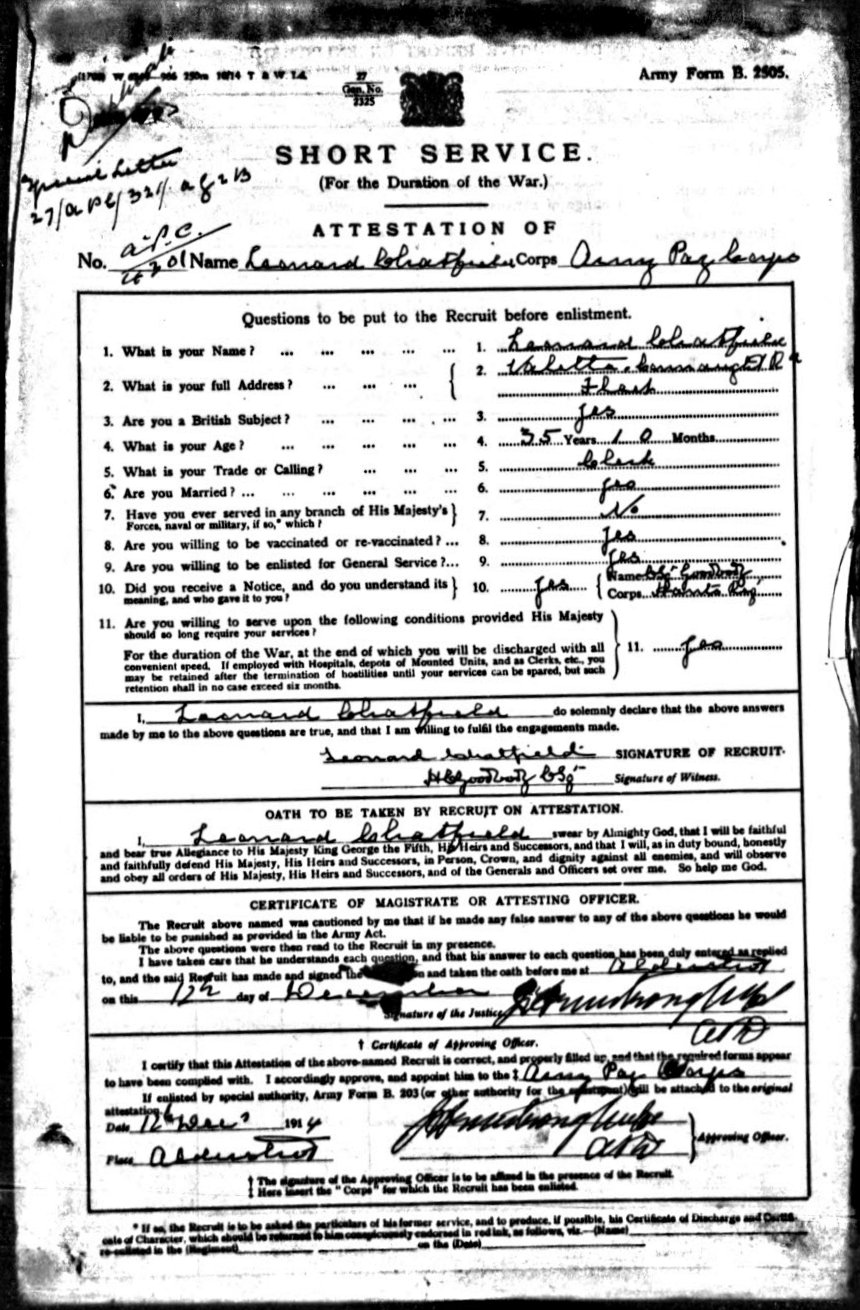 250m 10/14 T & W Ld.
27
Gen. No.
2325
Army Form B. 2505.
SHORT SERVICE.
(For the Duration of the War.)
Special Letter
ATTESTATION OF
No. A.P.C. Name Leonard Chatfield Corps Army Pay Corps
Questions to be put to the Recruit before enlistment.
1. What is your Name? ... ... ... ... ... 1. Leonard Chatfield
2. What is your full Address? ... ... ... 2. Valetta Connaught Rd
Fleet
3. Are you a British Subject? ... ... ... ... 3. Yes
4. What is your Age? ... ... ... ... ... 4. 35 Years 10 Months
5. What is your Trade or Calling? ... ... ... 5. Clerk
6. Are you Married? ... ... ... ... ... ... 6. Yes
7. Have you ever served in any branch of His Majesty's
Forces, naval or military, if so,* which? 7. No
8. Are you willing to be vaccinated or re-vaccinated? ... 8. Yes
9. Are you willing to be enlisted for General Service? ... 9. Yes
10. Did you receive a Notice, and do you understand its
meaning, and who gave it to you? 10. Yes Name
Corps Hants Reg
11. Are you willing to serve upon the following conditions provided His Majesty
should so long require your services?
For the duration of the War, at the end of which you will be discharged with all
convenient speed. If employed with Hospitals, depots of Mounted Units, and as Clerks, etc., you
may be retained after the termination of hostilities until your services can be spared, but such
retention shall in no case exceed six months. 11. Yes
I, Leonard Chatfield do solemnly declare that the above answers
made by me to the above questions are true, and that I am willing to fulfil the engagements made.
Leonard Chatfield SIGNATURE OF RECRUIT.
Signature of Witness.
OATH TO BE TAKEN BY RECRUIT ON ATTESTATION.
I, Leonard Chatfield swear by Almighty God, that I will be faithful
and bear true Allegiance to His Majesty King George the Fifth, His Heirs and Successors, and that I will, as in duty bound, honestly
and faithfully defend His Majesty, His Heirs and Successors, in Person, Crown, and dignity against all enemies, and will observe
and obey all orders of His Majesty, His Heirs and Successors, and of the Generals and Officers set over me. So help me God.
CERTIFICATE OF MAGISTRATE OR ATTESTING OFFICER.
The Recruit above named was cautioned by me that if he made any false answer to any of the above questions he would
be liable to be punished as provided in the Army Act.
The above questions were then read to the Recruit in my presence.
I have taken care that he understands each question, and that his answer to each question has been duly entered as replied
to, and the said Recruit has made and signed the and taken the oath before me at Aldershot
on this 12th day of December
Signature of the Justice
APD
† Certificate of Approving Officer.
I certify that this Attestation of the above-named Recruit is correct, and properly filled up, and that the required forms appear
to have been complied with. I accordingly approve, and appoint him to the ‡ Army Pay Corps
If enlisted by special authority, Army Form B. 203 (or other authority for the enlistment) will be attached to the original
attestation.
Date 12th Decr 1914
Approving Officer.
Place Aldershot APD
† The signature of the Approving Officer is to be affixed in the presence of the Recruit.
‡ Here insert the "Corps" for which the Recruit has been enlisted.
* If so, the Recruit is to be asked the particulars of his former service, and to produce, if possible, his Certificate of Discharge and Certifi-
cate of Character, which should be returned to him conspicuously endorsed in red ink, as follows, viz.—(Name)
re-enlisted in the (Regiment) on the (Date)